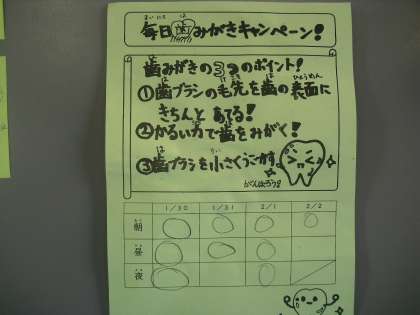 毎日歯みがきキャンペーン!
歯みがきの3つのポイント!
①歯ブラシの毛先を歯の表面に
きちんとあてる!
②かるい力で歯をみがく!
③歯ブラシを小さくうごかす
がんばろう!
1/30 1/31 2/1 2/2
朝
昼
夜